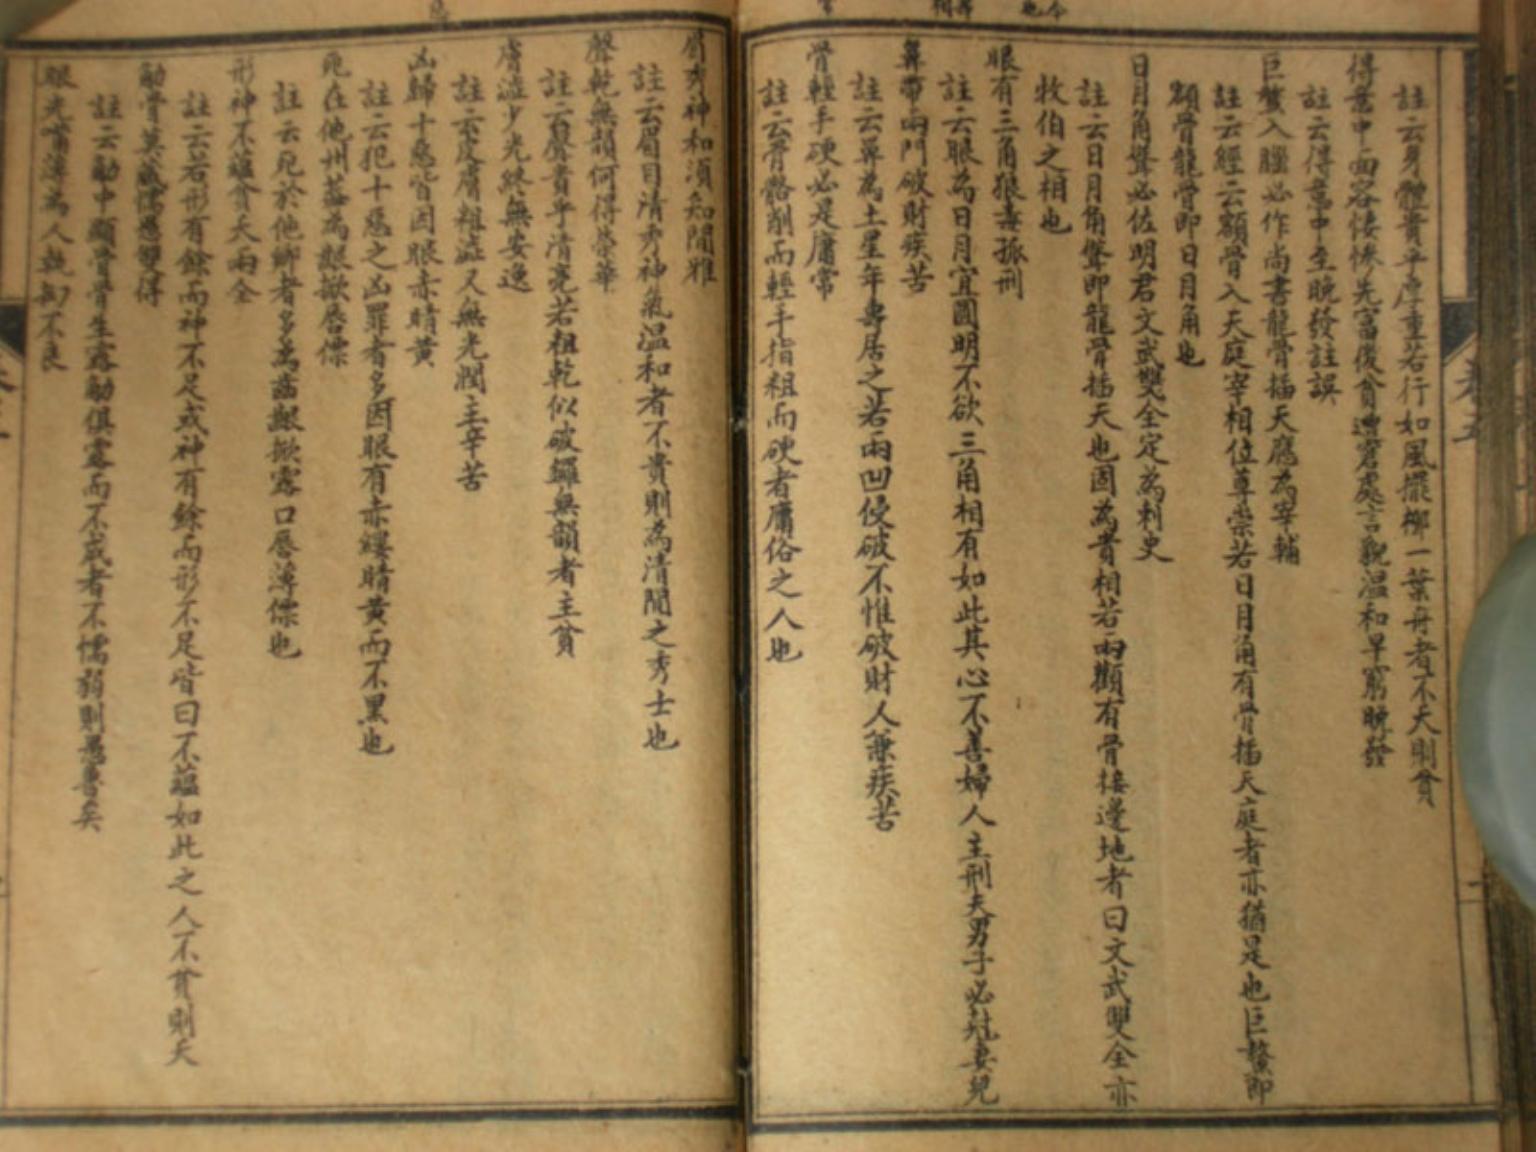 註云身體貴乎厚重若行如風擺柳一葉舟者不夭則貧
得意中面容悽慘先富後貧遭窘處言貌溫和早窮晚發
註云得意中至晚發註誤
巨鰲入腦必作尚書龍骨插天應為宰輔
註云經云額骨入天庭宰相位尊崇若日月角有骨插天庭者亦猶是也巨鰲即
額骨龍骨即日月角也
日月角聳必佐明君文武雙全定為刺史
註云日月角聳即龍骨插天也固為貴相若兩顴有骨接邊地者曰文武雙全亦
牧伯之相也
眼有三角狼毒孤刑
註云眼為日月宜圓明不欲三角相有如此其心不善婦人主刑夫男子必尅妻兒
鼻帶兩門破財疾苦
註云鼻為土星年壽居之若兩凹侵破不惟破財人兼疾苦
骨輕手硬必是庸常
註云骨骼削而輕手指粗而硬者庸俗之人也
眉秀神和須知閒雅
註云眉目清秀神氣溫和者不貴則為清閒之秀士也
聲乾無韻何得榮華
註云聲貴乎清亮若粗乾似破鑼無韻者主貧
膚澁少光終無安逸
註云皮膚粗澁又無光潤主辛苦
凶歸十惡皆因眼赤睛黃
註云犯十惡之凶罪者多因眼有赤縷睛黃而不黑也
死在他州蓋為齦掀唇僄
註云死於他鄉者多為齒齦掀露口唇薄僄也
形神不蘊貧夭兩全
註云若形有餘而神不足或神有餘而形不足皆曰不蘊如此之人不貧則夭
觔骨莫藏懦愚雙得
註云觔中顯骨骨生露觔俱露而不藏者不懦弱則愚魯矣
眼光嘴薄為人執拗不良
卷五